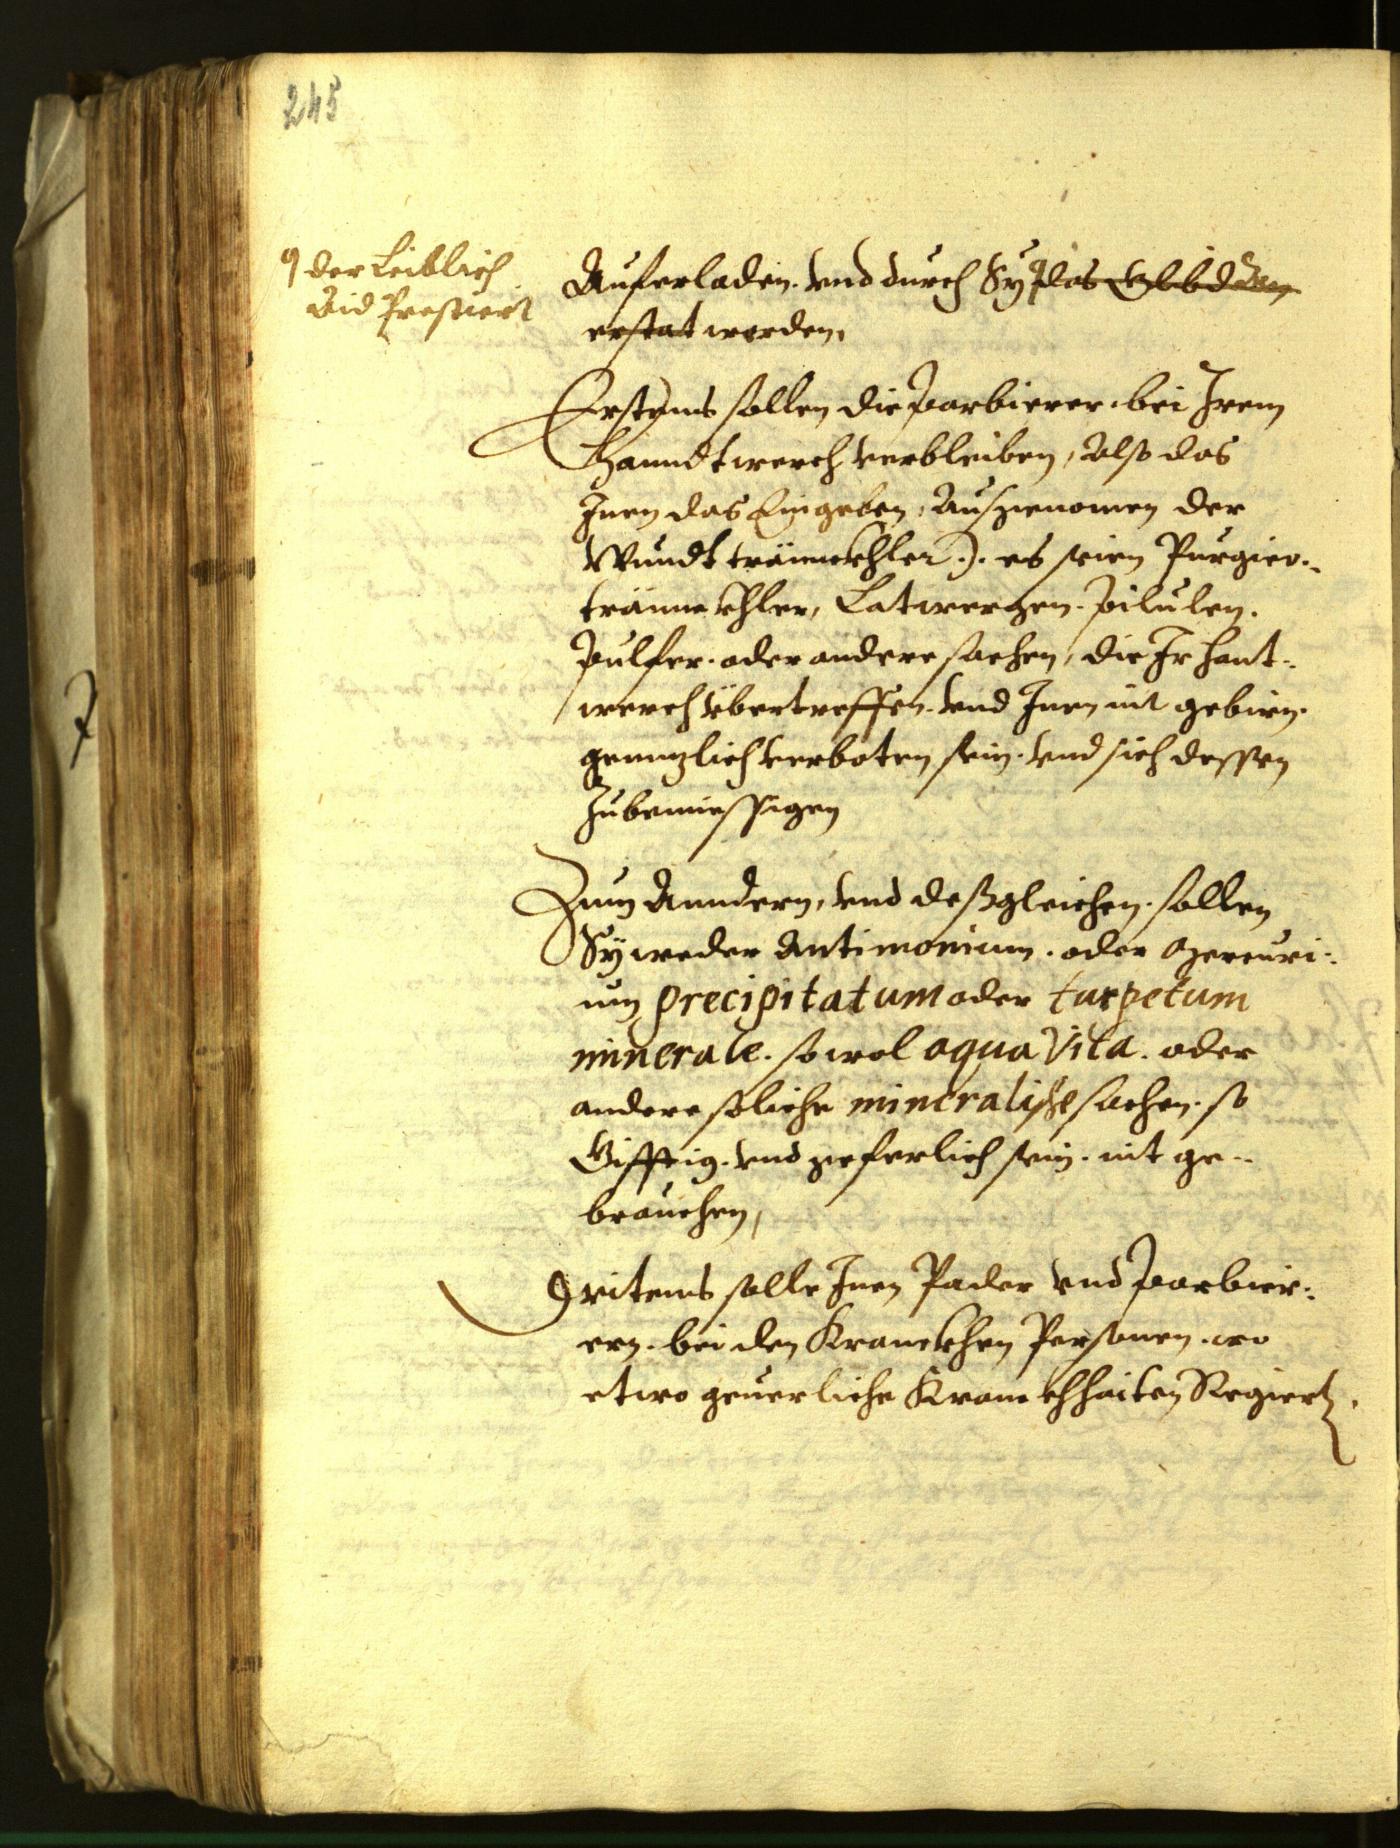 245
der Leiblich
Aid Prestiert
Auferladen. vnd durch Sy das Gelübd
erstat werden,
Erstens sollen die parbierer. bei Irem
Hanndtwerch verbleiben, Also das
Inen das Eingeben, Ausgenomen der
Wundt tränckhler.). es seien Purgier.
tränckhler, Latwergen. pilulen.
pulfer. oder andere sachen, die Ir Hant-
werch übertreffen. vnd Inen nit gebirn.
genntzlich verboten sein. vnd sich dessen
zubemiessigen
Zum Anndern, vnd deßgleichen. sollen
Sy weder Antimonium. oder Mercuri-
um precipitatum oder turpetum
minerale. so wol aqua Vita. oder
andere soliche mineralische sachen. so
Gifftig. vnd geferlich sein. nit ge-
brauchen,
Dritens solle Inen Pader vnd parbier-
ern. bei den Kranckhen Personen. wo
etwo geuerliche Kranckhhaiten Regiert,